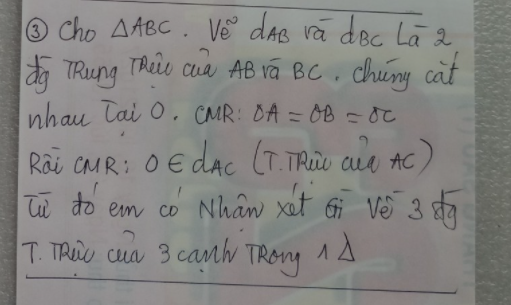 ③ Cho ΔABC. Vẽ dAB và dBC là 2
đg Trung Trực của AB và BC. chúng cắt
nhau Tại O. CMR: OA = OB = OC
Rồi CMR: O ∈ dAC (T.Trực của AC)
Từ đó em có Nhận xét Gì Về 3 đg
T.Trực của 3 cạnh TRong 1 Δ